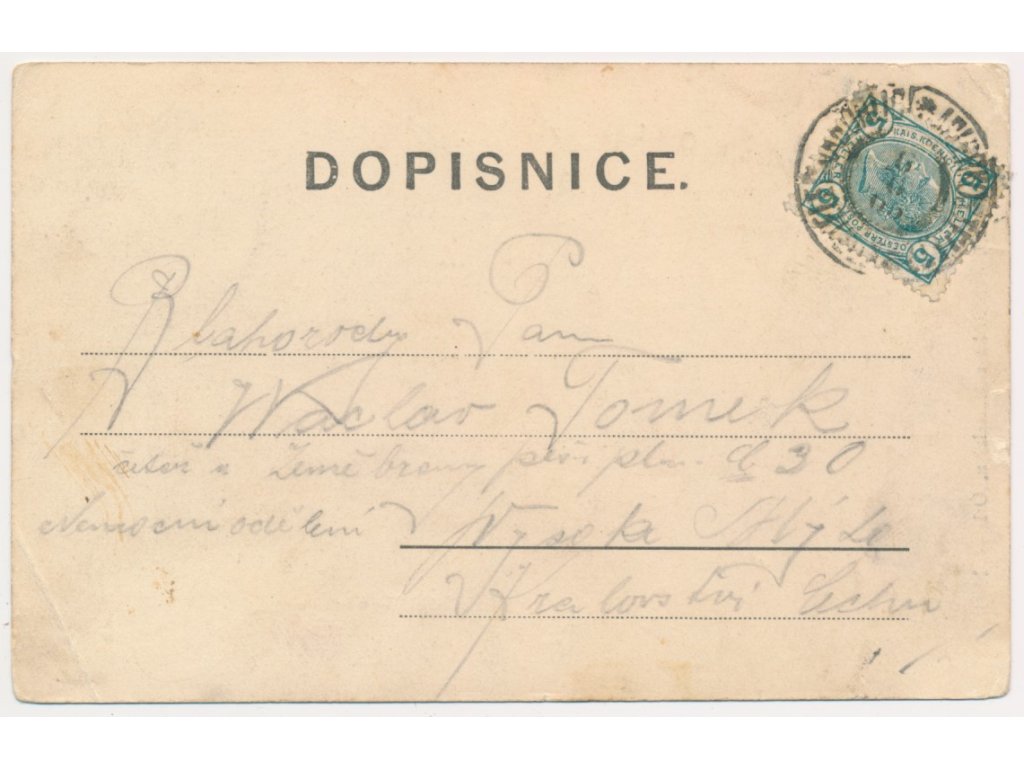 DOPISNICE.
Blahorody Pan
Waclav Tomek
u Země brany pěší pln. č 30
Nemocni oddĕleni Vysoke Mýto
Kralovstvi Čechy
KAIS. KOENIGL.
OESTERR. POST
5 HELLER 5